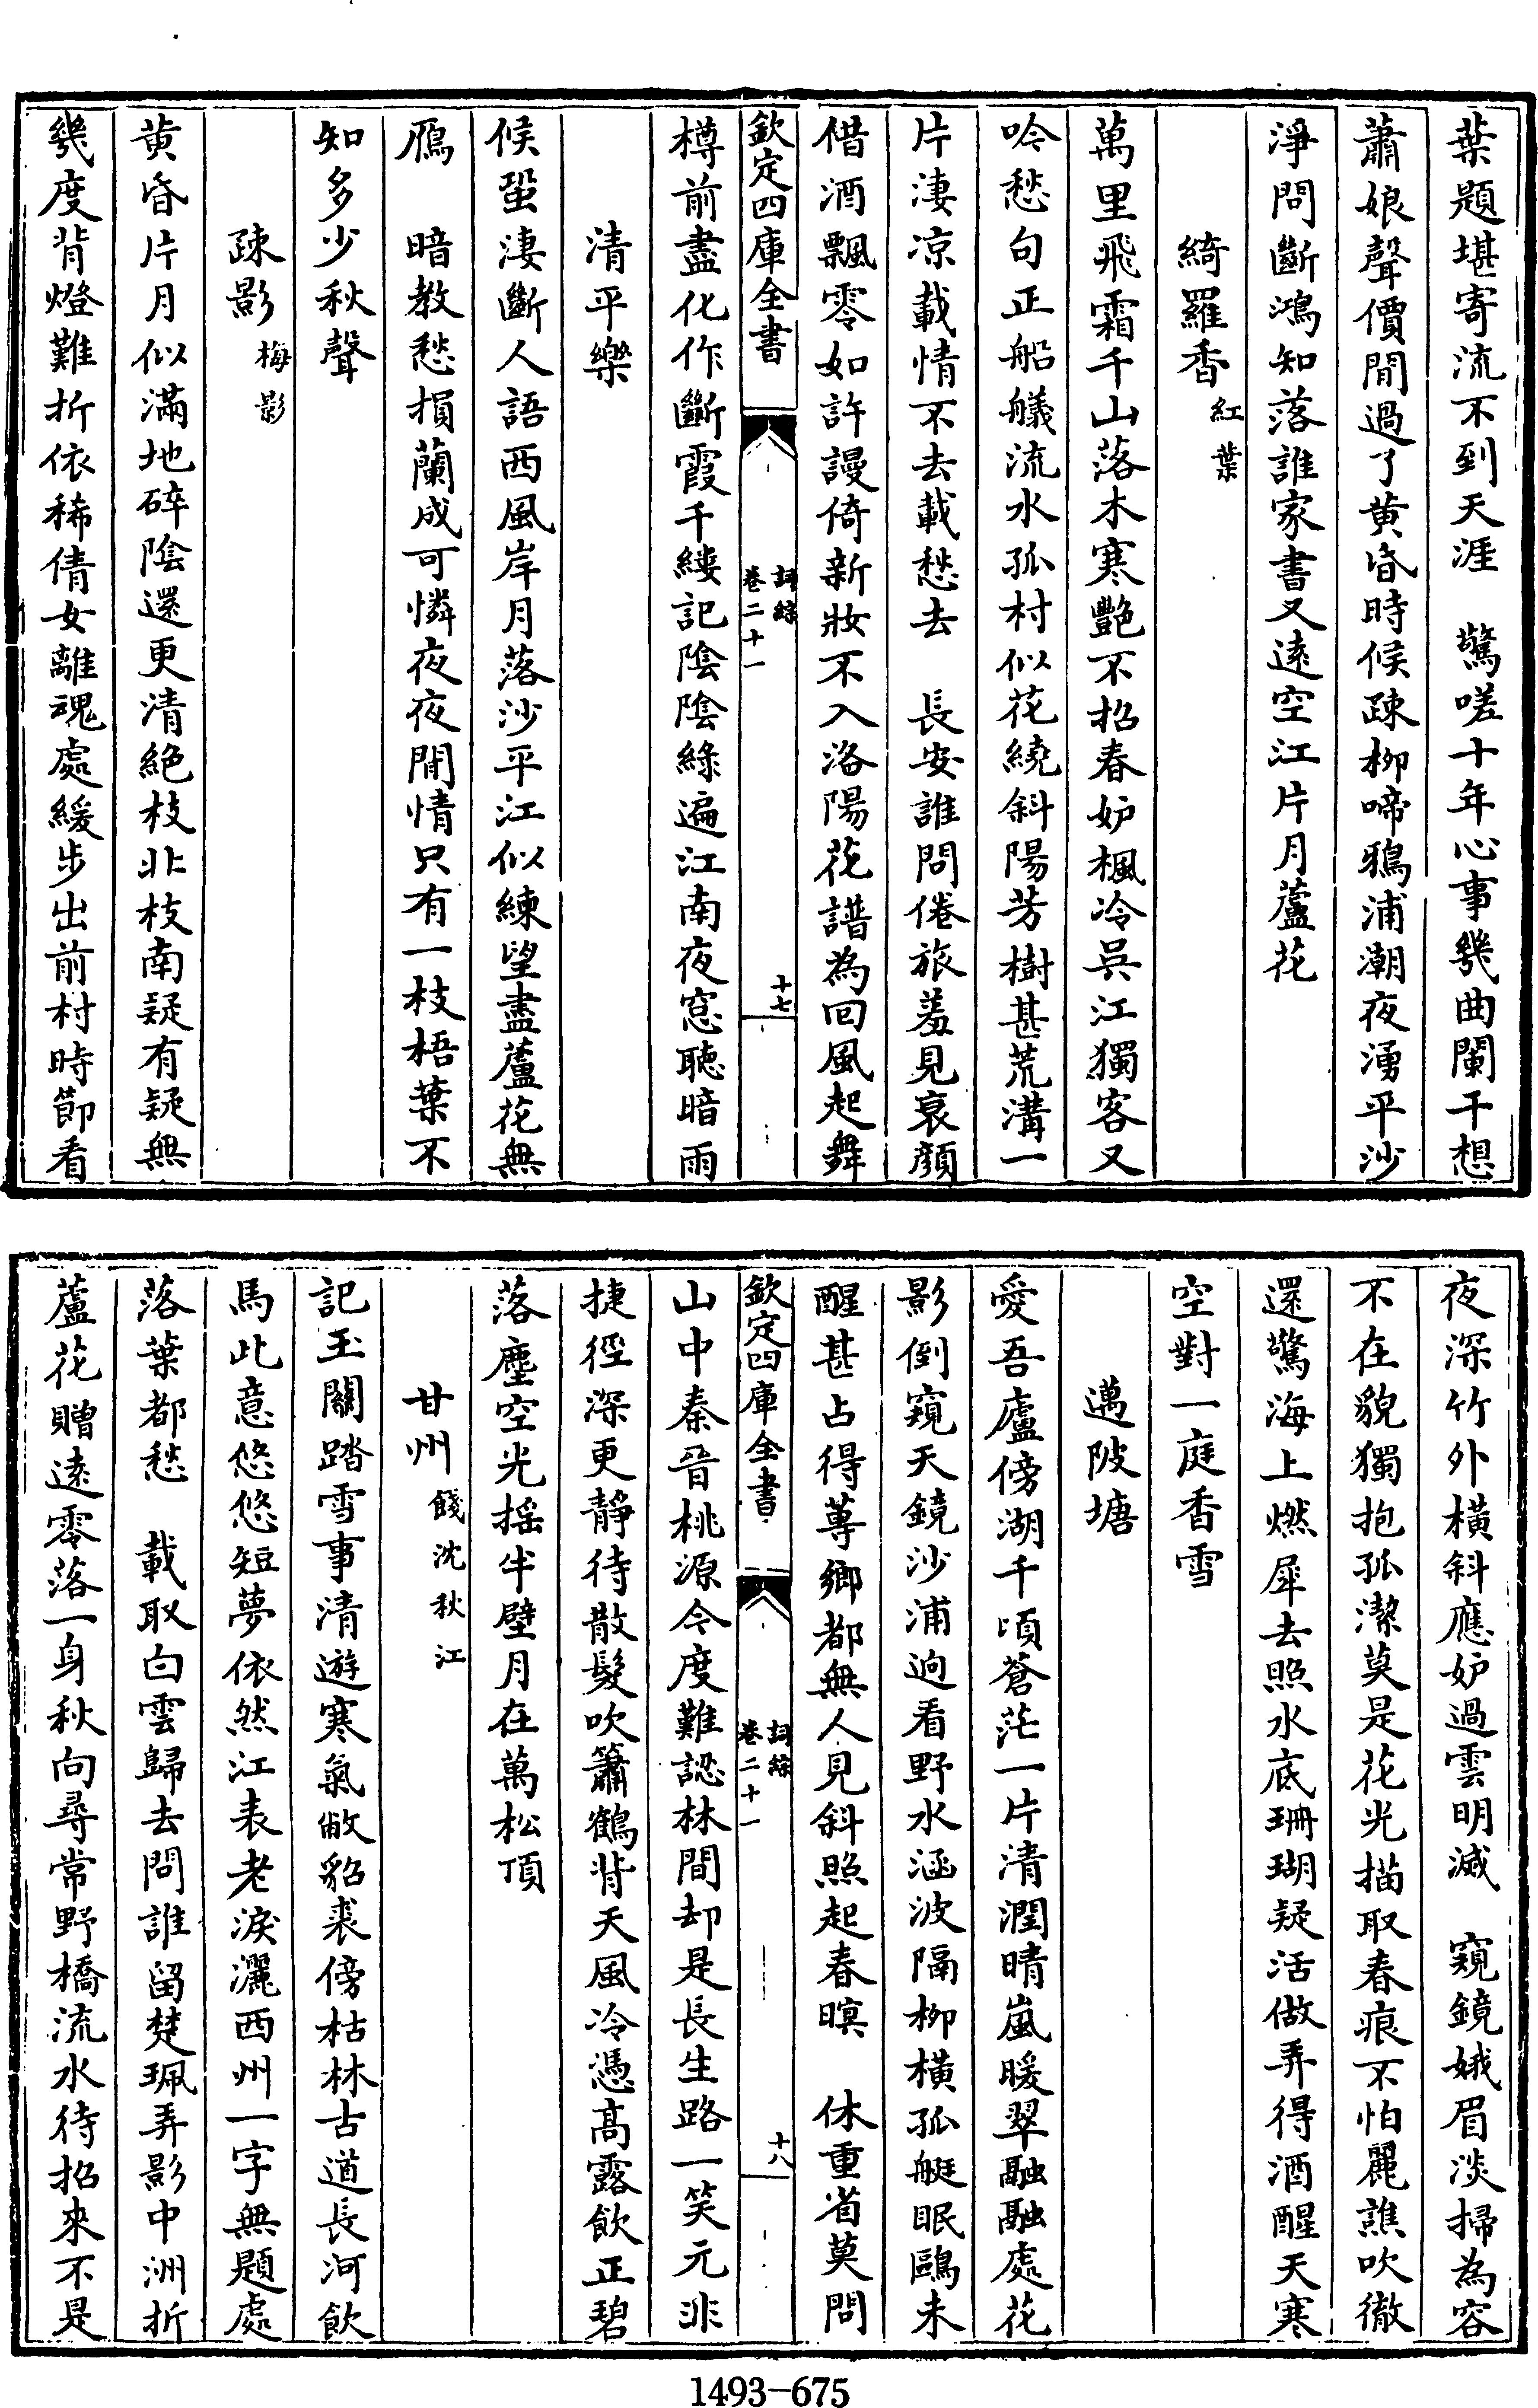 葉題堪寄流不到天涯　驚嗟十年心事幾曲闌干想
蕭娘聲價閒過了黄昏時候疎柳啼鴉浦潮夜湧平沙
淨問斷鴻知落誰家書又逺空江片月蘆花
綺羅香紅葉
萬里飛霜千山落木寒艷不招春妒楓冷呉江獨客又
吟愁句正船艤流水孤村似花繞斜陽芳樹甚荒溝一
片淒凉載情不去載愁去　長安誰問倦旅羞見衰顔
借酒飄零如許謾倚新妝不入洛陽花譜為回風起舞
欽定四庫全書　詞綜卷二十一　十七
樽前盡化作斷霞千縷記陰陰緑遍江南夜窓聴暗雨
清平樂
候蛩淒斷人語西風岸月落沙平江似練望盡蘆花無
鴈　暗教愁損蘭成可憐夜夜閒情只有一枝梧葉不
知多少秋聲
疎影梅影
黄昏片月似滿地碎陰還更清絶枝北枝南疑有疑無
幾度背燈難折依稀倩女離魂處緩步出前村時節看
夜深竹外橫斜應妒過雲明滅　窺鏡娥眉淡掃為容
不在貌獨抱孤潔莫是花光描取春痕不怕麗譙吹徹
還驚海上燃犀去照水底珊瑚疑活做弄得酒醒天寒
空對一庭香雪
邁陂塘
愛吾廬傍湖千頃蒼茫一片清潤晴嵐暖翠融融處花
影倒窺天鏡沙浦逈看野水涵波隔柳橫孤艇眠鷗未
醒甚占得蓴鄉都無人見斜照起春暝　休重省莫問
欽定四庫全書　詞綜卷二十一　十八
山中秦晉桃源今度難認林間却是長生路一笑元非
捷徑深更靜待散髮吹簫鶴背天風冷憑髙露飲正碧
落塵空光揺半壁月在萬松頂
甘州餞沈秋江
記玉關踏雪事清遊寒氣敝貂裘傍枯林古道長河飲
馬此意悠悠短夢依然江表老淚灑西州一字無題處
落葉都愁　載取白雲歸去問誰留楚珮弄影中洲折
蘆花贈逺零落一身秋向尋常野橋流水待招來不是
1493-675